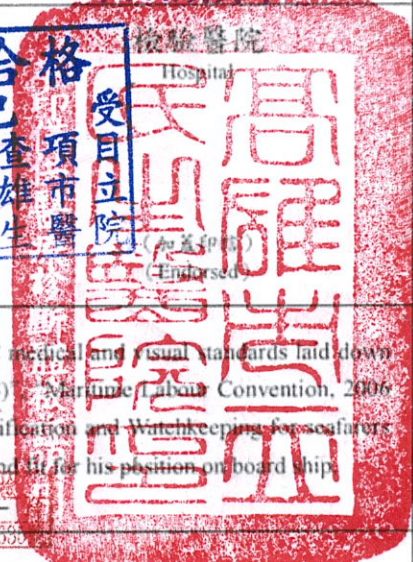 檢驗醫院
Hospital
(加蓋印信)
(Endorsed)
格
受目立院
項市醫
查雄生
高雄市立
民生醫院
medical and visual standards laid down
Maritime Labour Convention, 2006
ification and Watchkeeping for seafarers
nd fit for his position on board ship.